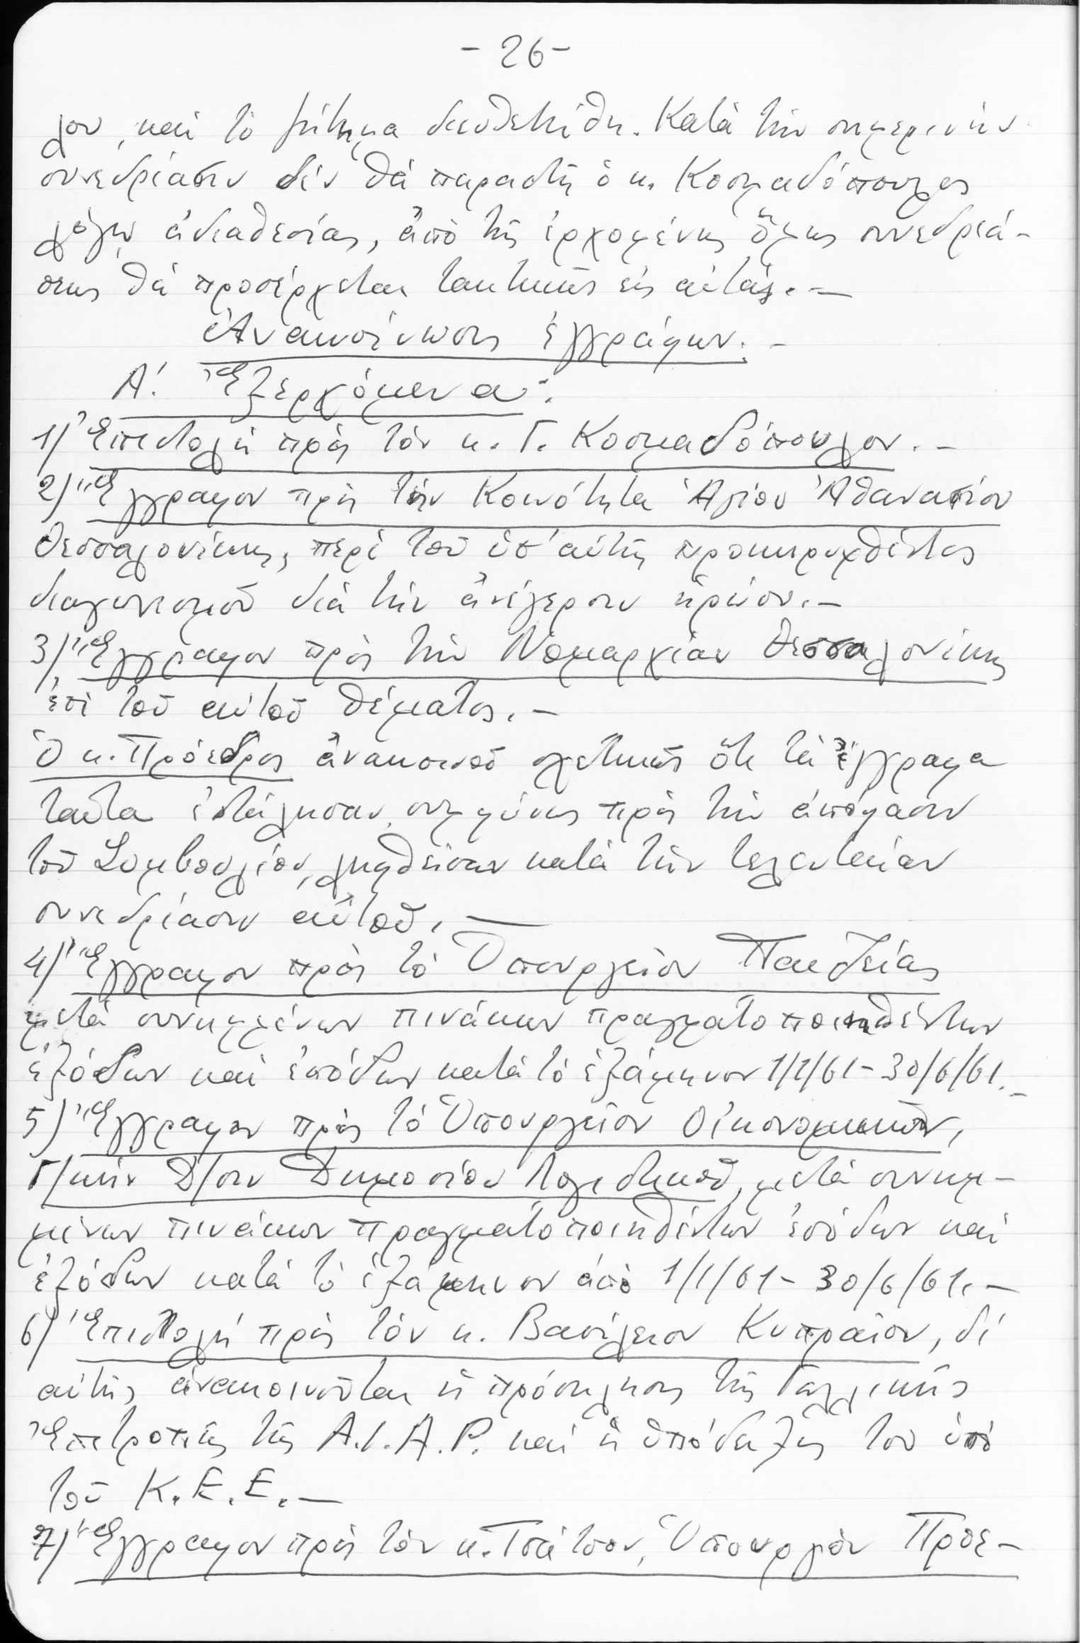 - 26 -
λου, καὶ τὸ ζήτημα διευθετήθη. Κατὰ τὴν σημερινὴν
συνεδρίασιν δὲν θὰ παραστῇ ὁ κ. Κοσμαδόπουλος
λόγῳ ἀδιαθεσίας, ἀπὸ τῆς ἐρχομένης ὅμως συνεδριά-
σεως θὰ προσέρχεται τακτικῶς εἰς αὐτάς. —
Ἀνακοίνωσις ἐγγράφων. -
Α'. Ἐξερχόμενα:
1) Ἐπιστολὴ πρὸς τὸν κ. Γ. Κοσμαδόπουλον. —
2) Ἔγγραφον πρὸς τὴν Κοινότητα Ἁγίου Ἀθανασίου
Θεσσαλονίκης, περὶ τοῦ ὑπ' αὐτῆς προκηρυχθέντος
διαγωνισμοῦ διὰ τὴν ἀνέγερσιν ἡρώου. —
3) Ἔγγραφον πρὸς τὴν Νομαρχίαν Θεσσαλονίκης
ἐπὶ τοῦ αὐτοῦ θέματος. —
Ὁ κ. Πρόεδρος ἀνακοινοῖ σχετικῶς ὅτι τὰ ἔγγραφα
ταῦτα ἐστάλησαν, συμφώνως πρὸς τὴν ἀπόφασιν
τοῦ Συμβουλίου, ληφθεῖσαν κατὰ τὴν τελευταίαν
συνεδρίασιν αὐτοῦ. —
4) Ἔγγραφον πρὸς τὸ Ὑπουργεῖον Παιδείας
μετὰ συνημμένων πινάκων πραγματοποιηθέντων
ἐξόδων καὶ ἐσόδων κατὰ τὸ ἑξάμηνον 1/1/61 - 30/6/61. -
5) Ἔγγραφον πρὸς τὸ Ὑπουργεῖον Οἰκονομικῶν,
Γ/κὴν Δ/σιν Δημοσίου Λογιστικοῦ, μετὰ συνημ-
μένων πινάκων πραγματοποιηθέντων ἐσόδων καὶ
ἐξόδων κατὰ τὸ ἑξάμηνον ἀπὸ 1/1/61 - 30/6/61. —
6) Ἐπιστολὴ πρὸς τὸν κ. Βασίλειον Κυπραῖον, δι'
αὐτῆς ἀνακοινοῦται ἡ πρόσκλησις τῆς Γαλλικῆς
Ἐπιτροπῆς τῆς A.I.A.P. καὶ ἡ ὑπόδειξίς του ὑπὸ
τοῦ Κ.Ε.Ε. —
7) Ἔγγραφον πρὸς τὸν κ. Τσάτσον, Ὑπουργὸν Προε-